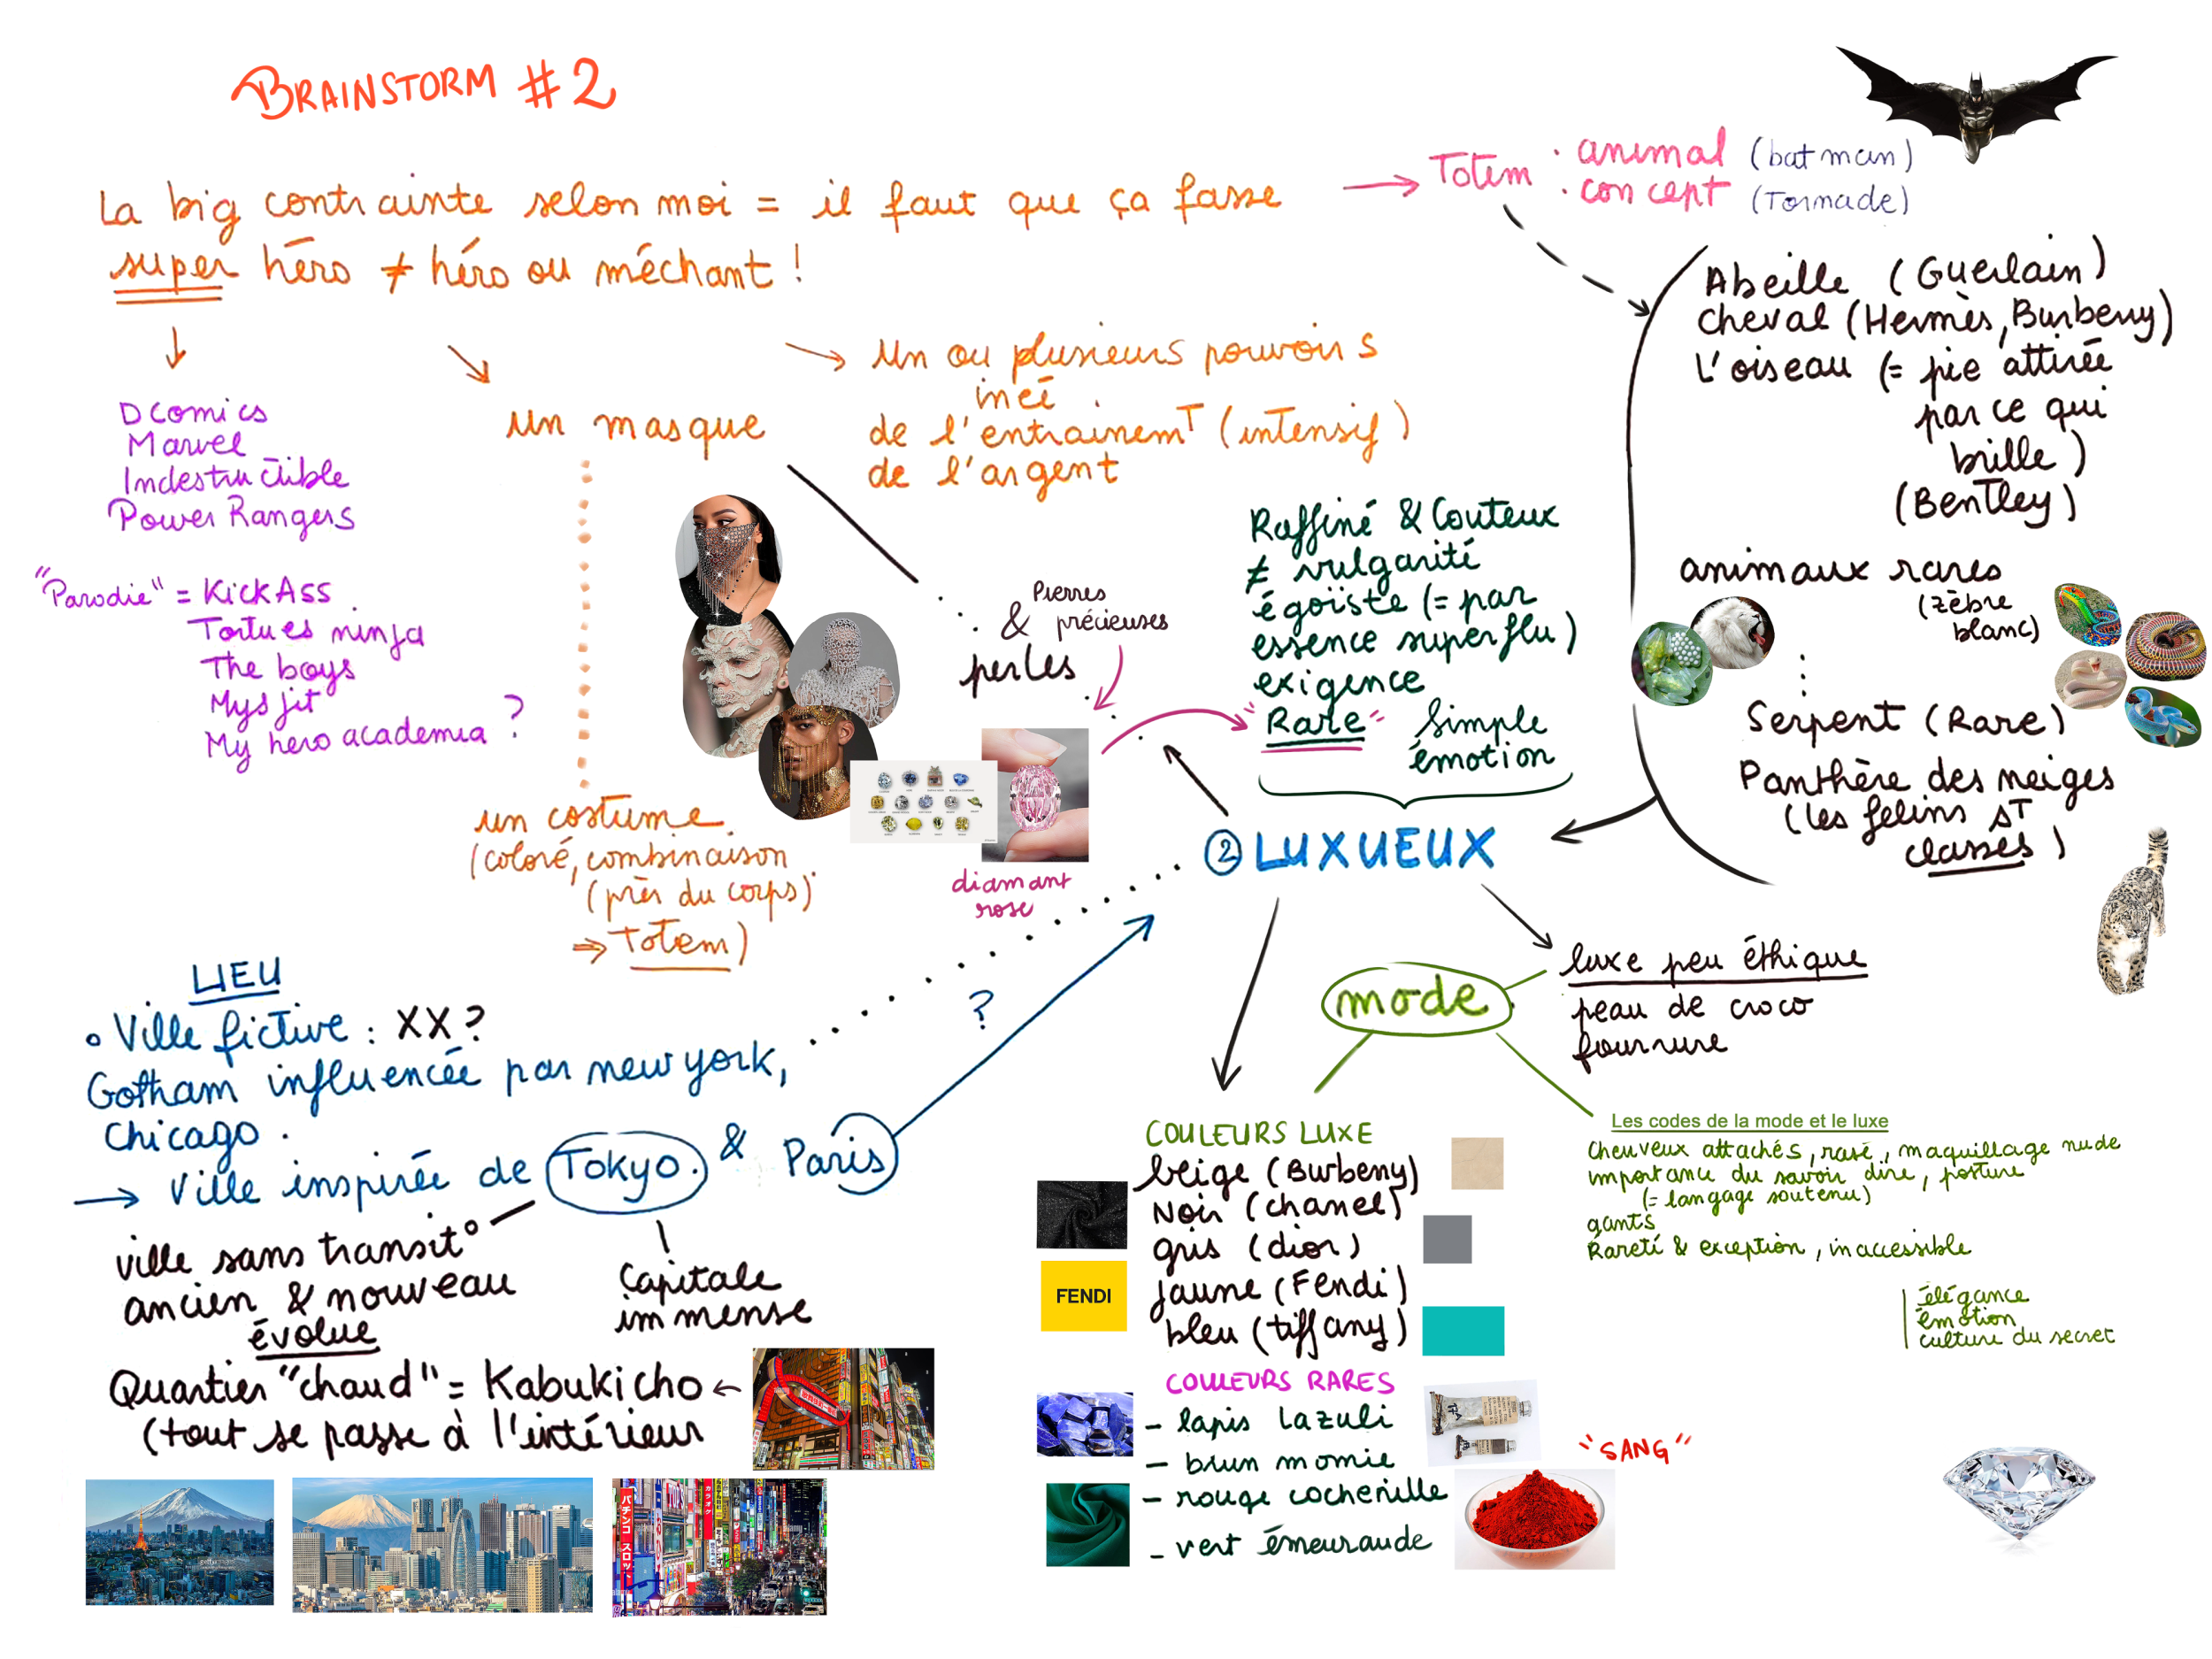 BRAINSTORM #2
La big contrainte selon moi = il faut que ça fasse
super héro ≠ héro ou méchant !
Totem : animal (batman)
: concept (Tornade)
DComics
Marvel
Indestructible
Power Rangers
"Parodie" = KickAss
Tortues ninja
The boys
Mysfit
My hero academia ?
un masque
un ou plusieurs pouvoirs
inéé
de l'entrainemT (intensif)
de l'argent
un costume
(coloré, combinaison
(près du corps)
⇒ Totem)
Pierres
& précieuses
perles
diamant
rose
Raffiné & Couteux
≠ vulgarité
égoïste (= par
essence superflu)
exigence
"Rare" Simple
émotion
② LUXUEUX
Abeille (Guerlain)
Cheval (Hermès, Burberry)
L'oiseau (= pie attirée
par ce qui
brille)
(Bentley)
animaux rares
(zèbre
blanc)
Serpent (Rare)
Panthère des neiges
(les felins sT
classes)
LIEU
Ville fictive : XX ?
Gotham influencée par new york,
Chicago.
→ Ville inspirée de Tokyo. & Paris
?
ville sans transit°
ancien & nouveau
évolue
Capitale
immense
Quartier "chaud" = Kabukicho ←
(tout se passe à l'intérieur
パチンコ スロット
カラオケ
gettyimages
mode
luxe peu éthique
peau de croco
fourrure
COULEURS LUXE
beige (Burberry)
Noir (chanel)
gris (dior)
jaune (Fendi)
bleu (tiffany)
FENDI
COULEURS RARES
- lapis Lazuli
- brun momie
- rouge cochenille
- vert émeuraude
"SANG"
Les codes de la mode et le luxe
Cheuveux attachés, rasé, maquillage nude
importance du savoir dire, posture
(= langage soutenu)
gants
Rareté & exception, inaccessible
élégance
émotion
culture du secret